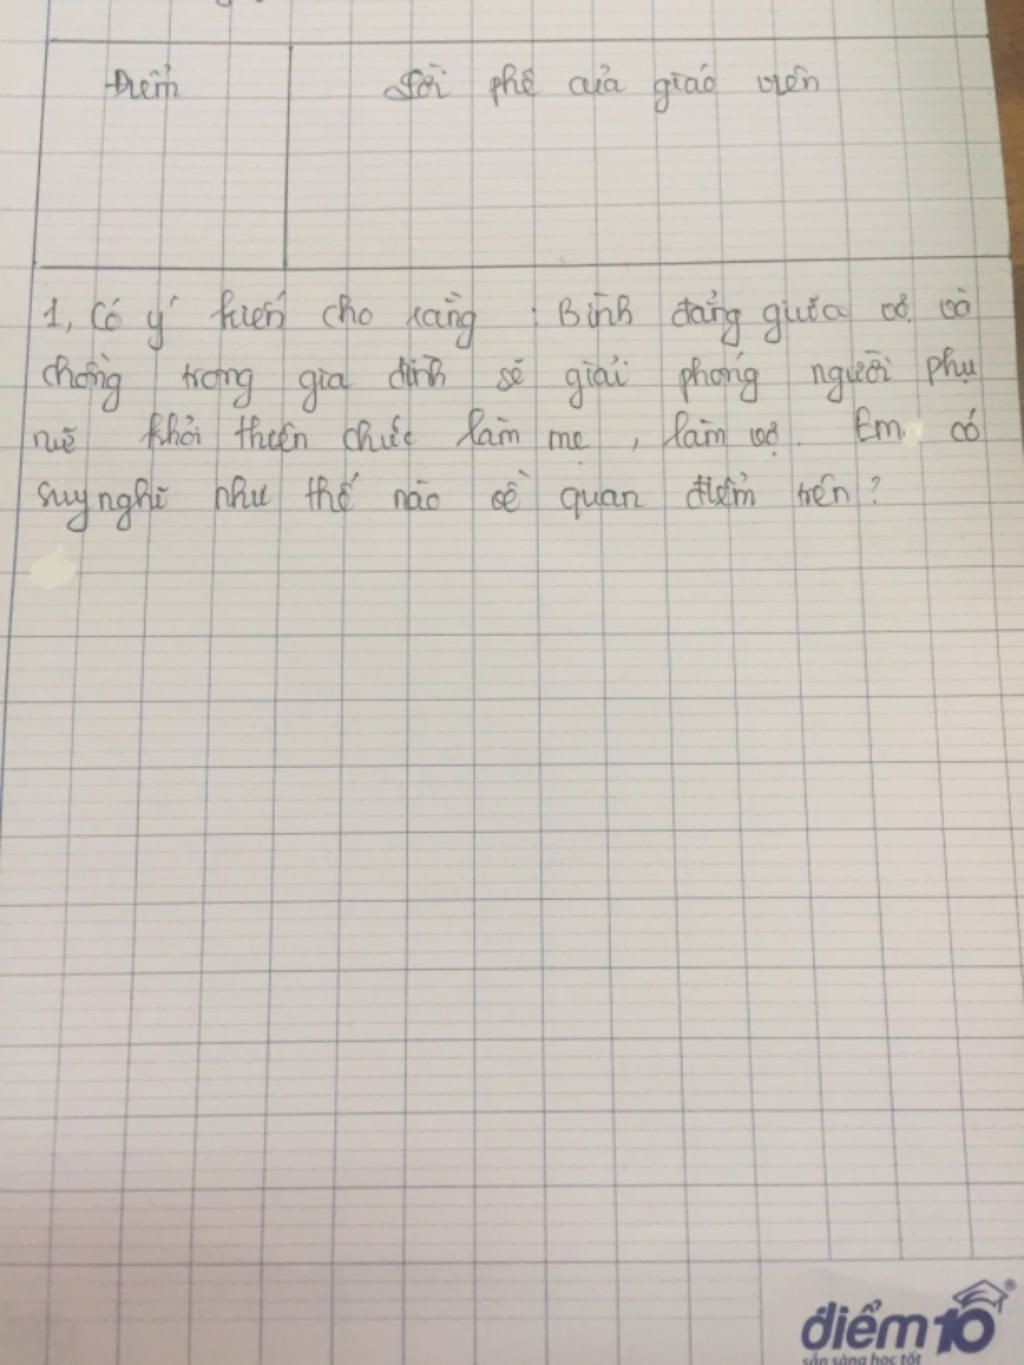 Điểm Lời phê của giáo viên
1, Có ý kiến cho rằng : Bình đẳng giữa vợ và
chồng trong gia đình sẽ giải phóng người phụ
nữ khỏi thiên chức làm mẹ , làm vợ. Em có
suy nghĩ như thế nào về quan điểm trên?
điểm10®
sẵn sàng học tốt